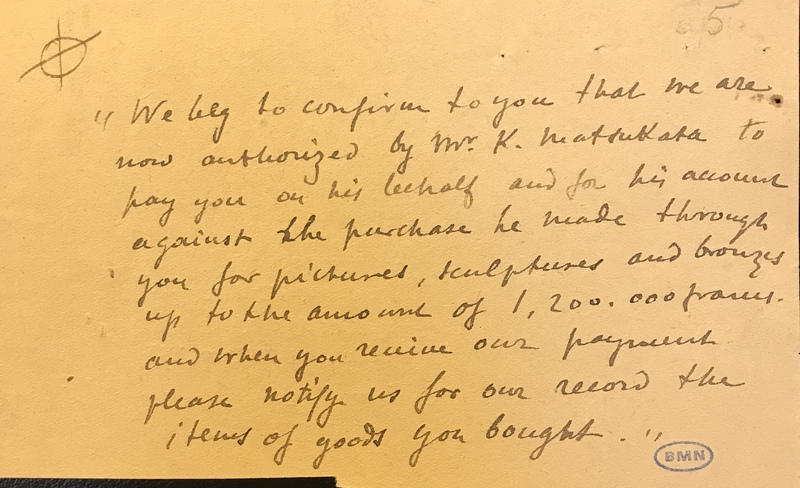 5
"We beg to confirm to you that we are
now authorized by Mr. K. Matsukata to
pay you on his behalf and for his account
against the purchase he made through
you for pictures, sculptures and bronzes
up to the amount of 1,200.000 francs.
and when you receive our payment
please notify us for our record the
items of goods you bought."
BMN